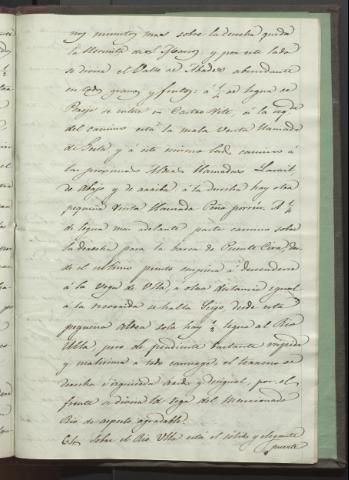 nos minutos mas sobre la derecha queda
la Hermita de
se divisa el Valle de abundante
en todos granos y frutos: á de legua se
Baja se entra en Castro Vite, á la izq.da
del camino está la mala Venta llamada
de y á este mismo lado camino á
las proximas Aldeas llamadas
de Abajo y de arriba á la derecha hay otra
pequeña Venta llamada Peña porrin. A
de legua mas adelante parte camino sobre
la derecha para la barca de Puente
de el ultimo punto empieza á descenderse
á la Vega de Ulla, á otra distancia igual
á la recorrida se halla desde esta
pequeña Aldea solo hay legua al Rio
Ulla, pero de pendiente bastante rapida
y malisima a todo carruage, el terreno de
derecha é izquierda arido y desigual, por el
frente se divisa la Vega del mencionado
Rio de aspecto agradable.
sobre el Rio Ulla está el sólido y elegante
puente